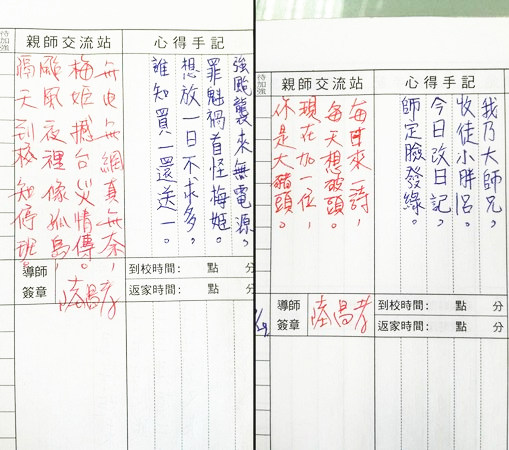 待加強
親師交流站
心得手記
強颱襲來無電源，
罪魁禍首怪梅姬。
想放一日不求多，
誰知買一還送一。
無电無網真無奈，
梅姬撼台災情傳。
颱風夜裡像孤島，
隔天到校知停班。
導師簽章
到校時間： 點 分
返家時間： 點 分
待加強
親師交流站
心得手記
我乃大師兄，
收徒小胖侶。
今日改日記，
師定臉發綠。
每日來一詩，
每天想破頭。
現在加一位，
你是大豬頭。
導師簽章
到校時間： 點 分
返家時間： 點 分